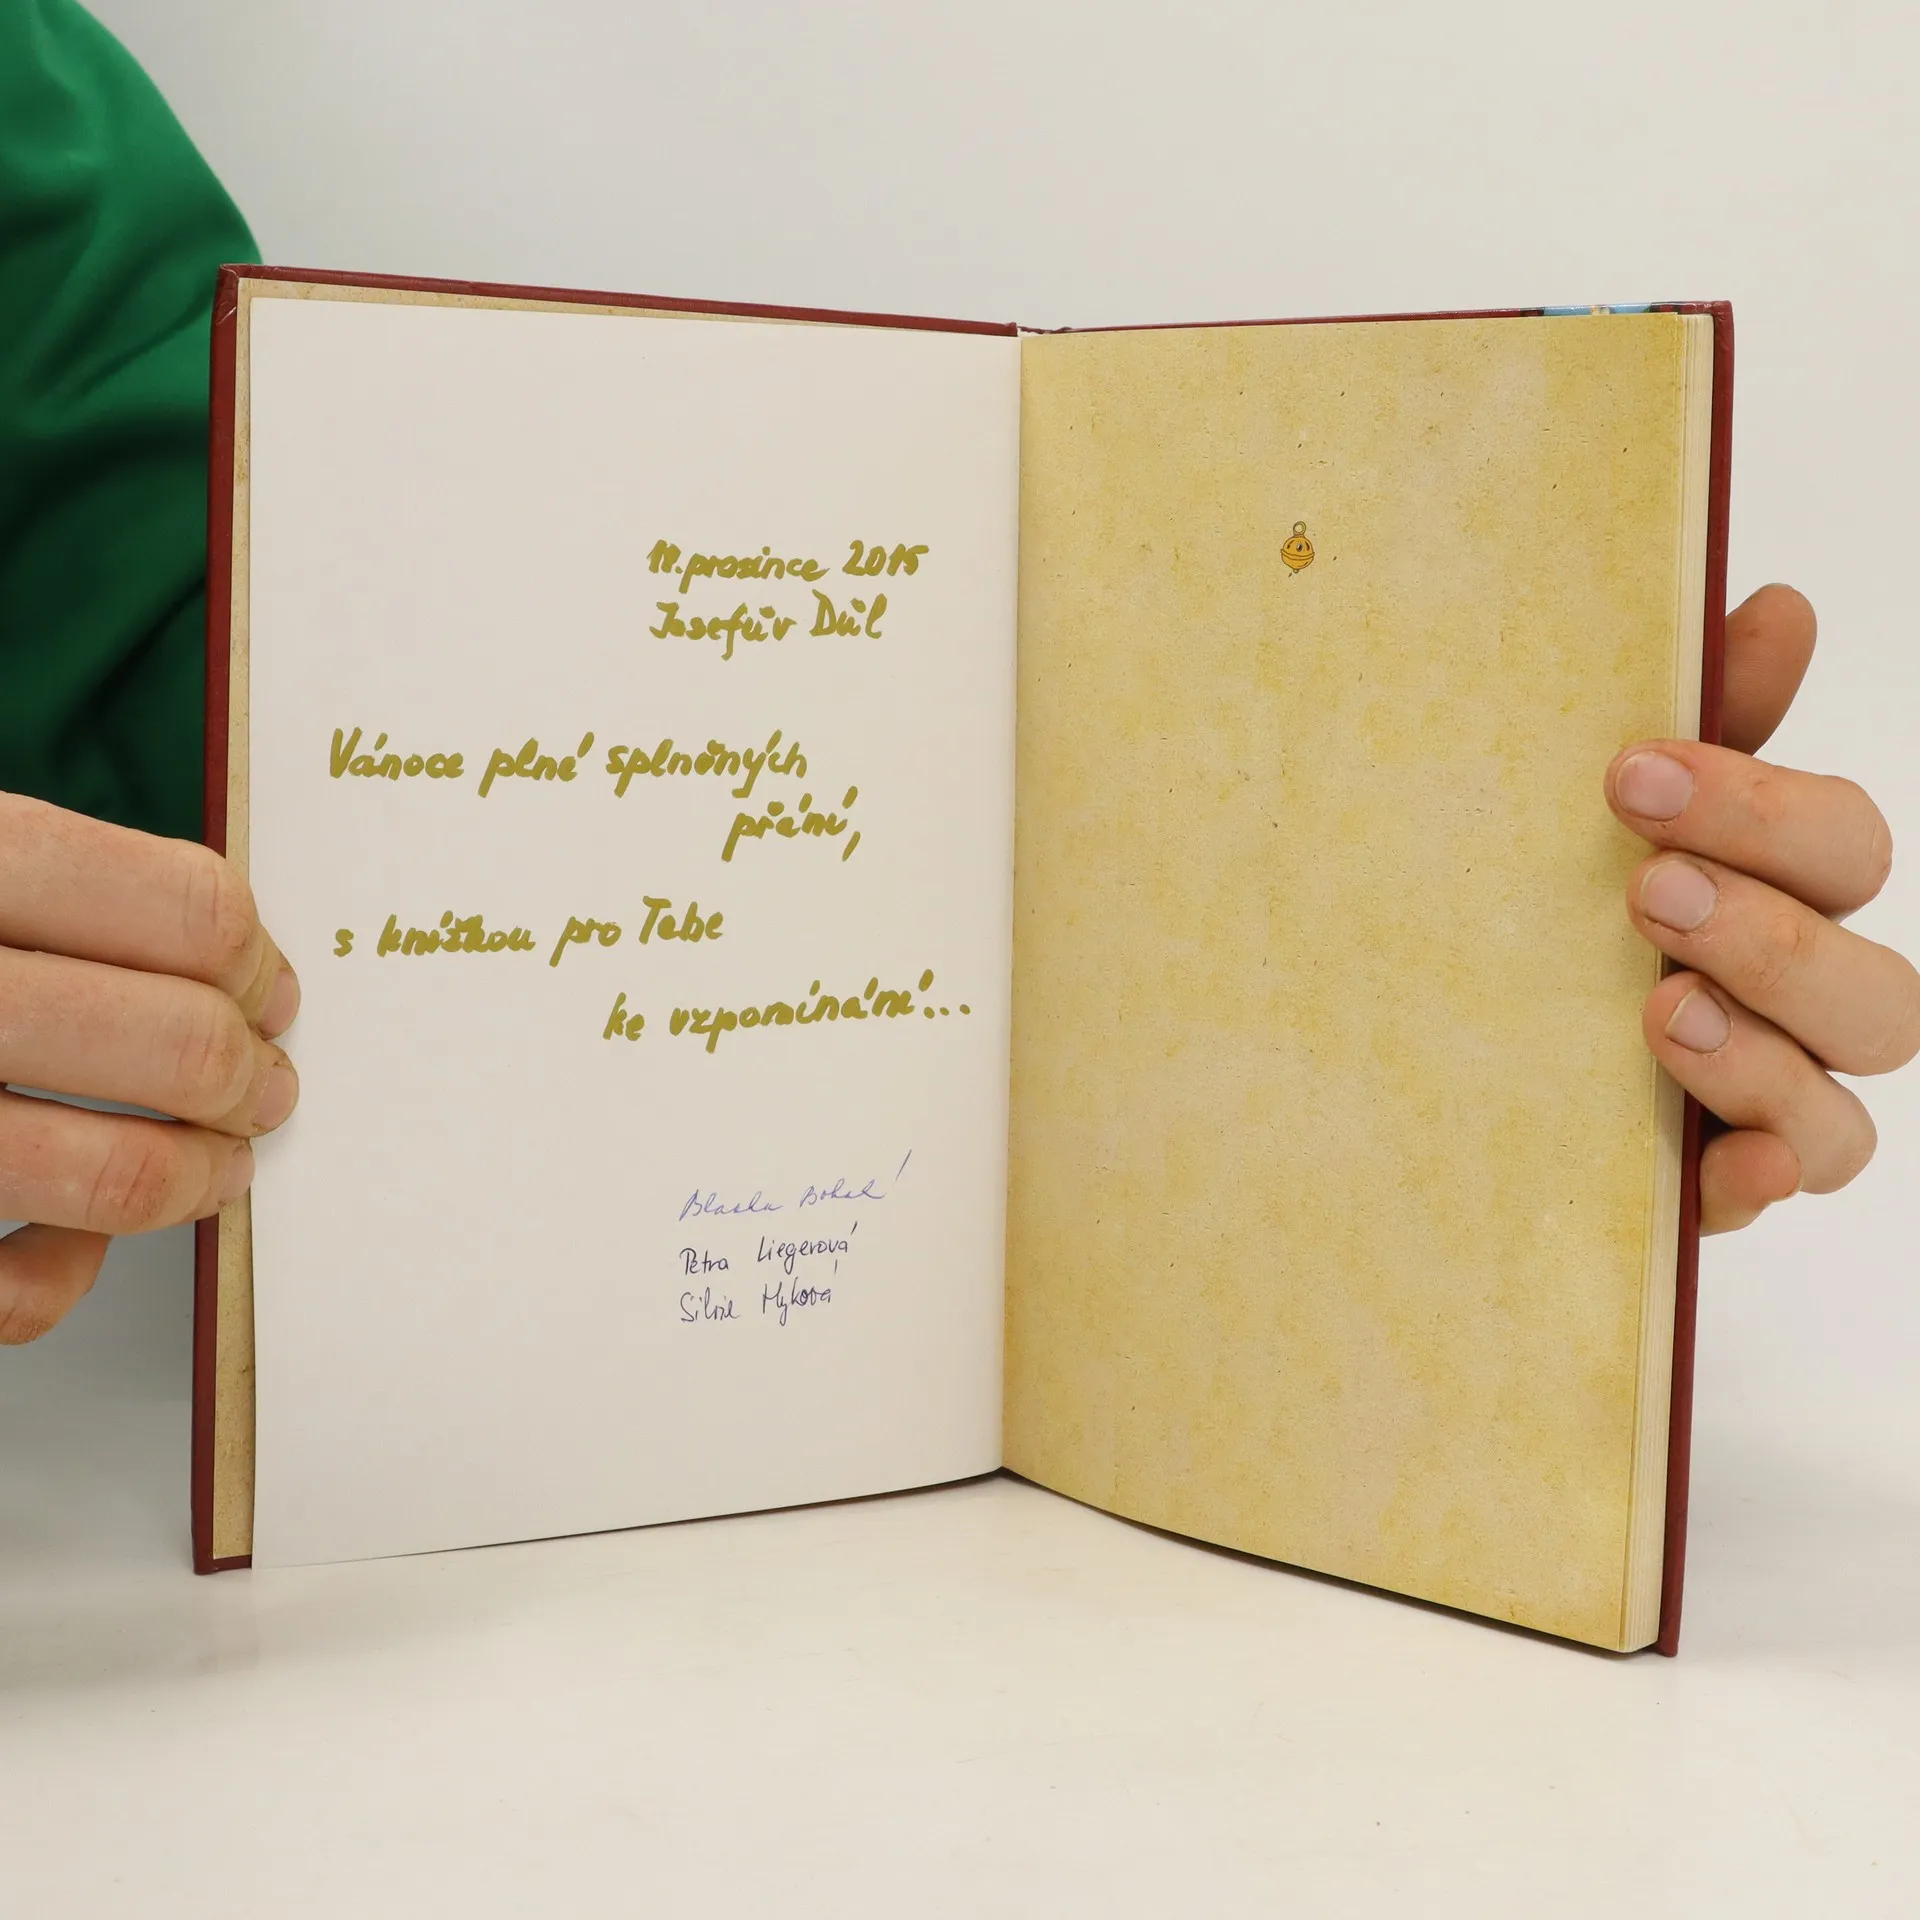 11. prosince 2015
Josefův Důl
Vánoce plné splněných
přání,
s knížkou pro Tebe
ke vzpomínání...
Petra Liegerová
Silvie Myková